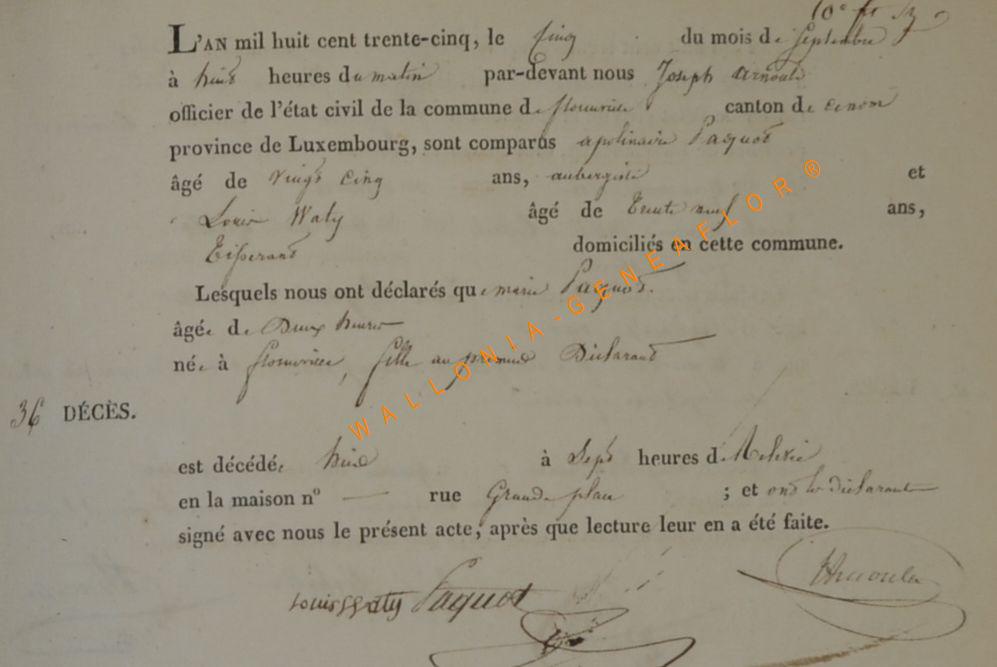 L'AN mil huit cent trente-cinq, le cinq du mois de Septembre
à huit heures du matin par-devant nous Joseph arnould
officier de l'état civil de la commune de florenville canton de
province de Luxembourg, sont comparus apolinaire Paquot
âgé de vingt cinq ans, aubergiste et
Louis Waty âgé de trente neuf ans,
Tisserand domiciliés en cette commune.
Lesquels nous ont déclarés que marie Paquot.
âgée de Deux heures
née à florenville, fille au premier Déclarant
36 DÉCÈS.
est décédée hier à Sept heures de Relevée
en la maison n° — rue Grande place ; et ont les Déclarants
signé avec nous le présent acte, après que lecture leur en a été faite.
Louis Waty Paquot Arnould
WALLONIA-GENEAFLOR®